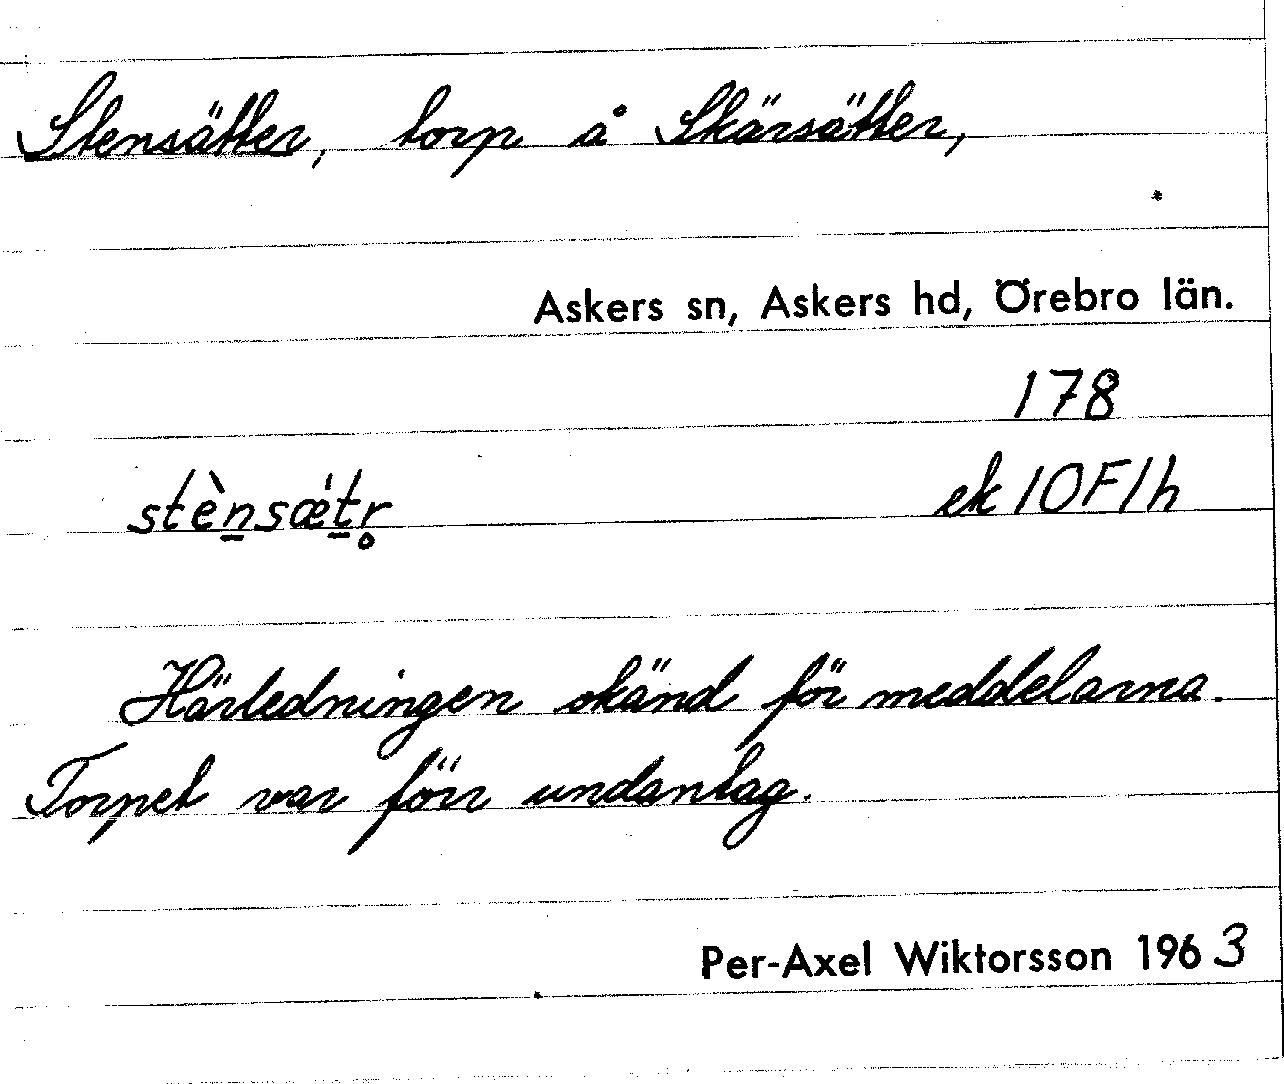 Stensätter, torp å Skärsätter,
Askers sn, Askers hd, Örebro län.
178
stènsǽtr̥ ek 10F1h
Härledningen okänd för meddelarna.
Torpet var förr undantag.
Per-Axel Wiktorsson 1963